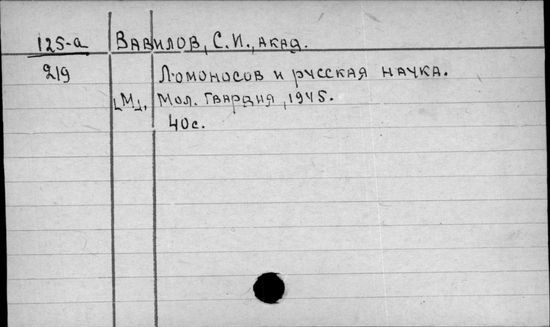 125-а Вавилов, С.И., акад.
219 Ломоносов и русская наука.
[М], Мол. гвардия, 1945.
40с.